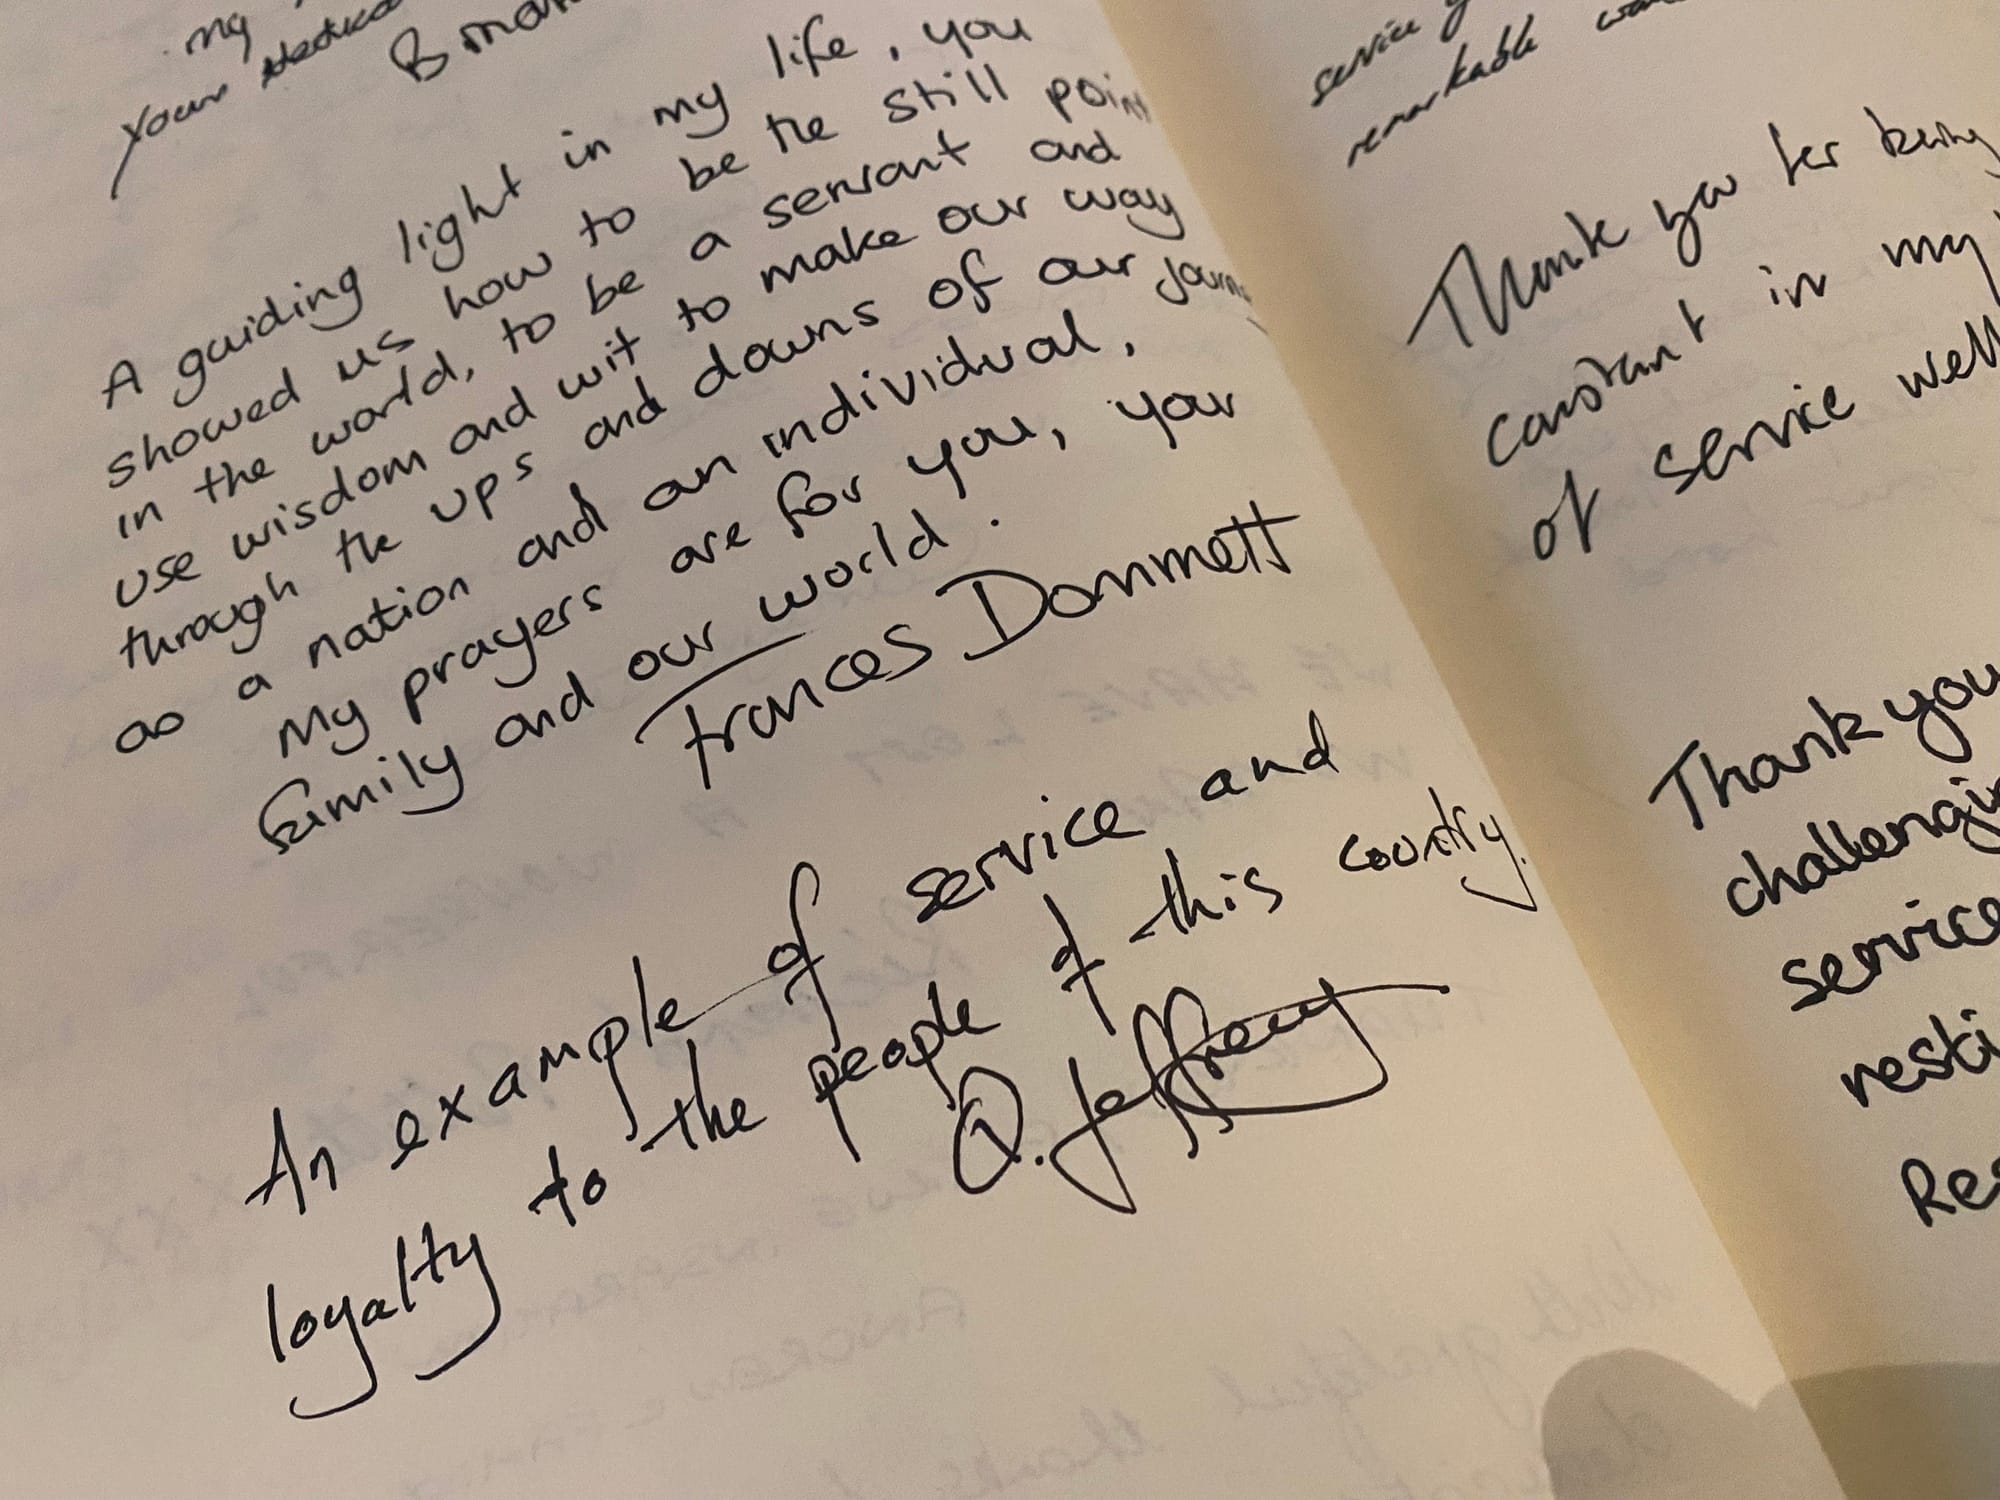 my
Your
A guiding light in my life, you
showed us how to be the still point
in the world, to be a servant and
use wisdom and wit to make our way
through the ups and downs of our
as a nation and an individual.
My prayers are for you, your
family and our world.
Frances Dommett
An example of service and
loyalty to the people of this country.
Q. Jeffrey
service
remarkable
Thank you for being
constant in my
of service well
Thank you
service